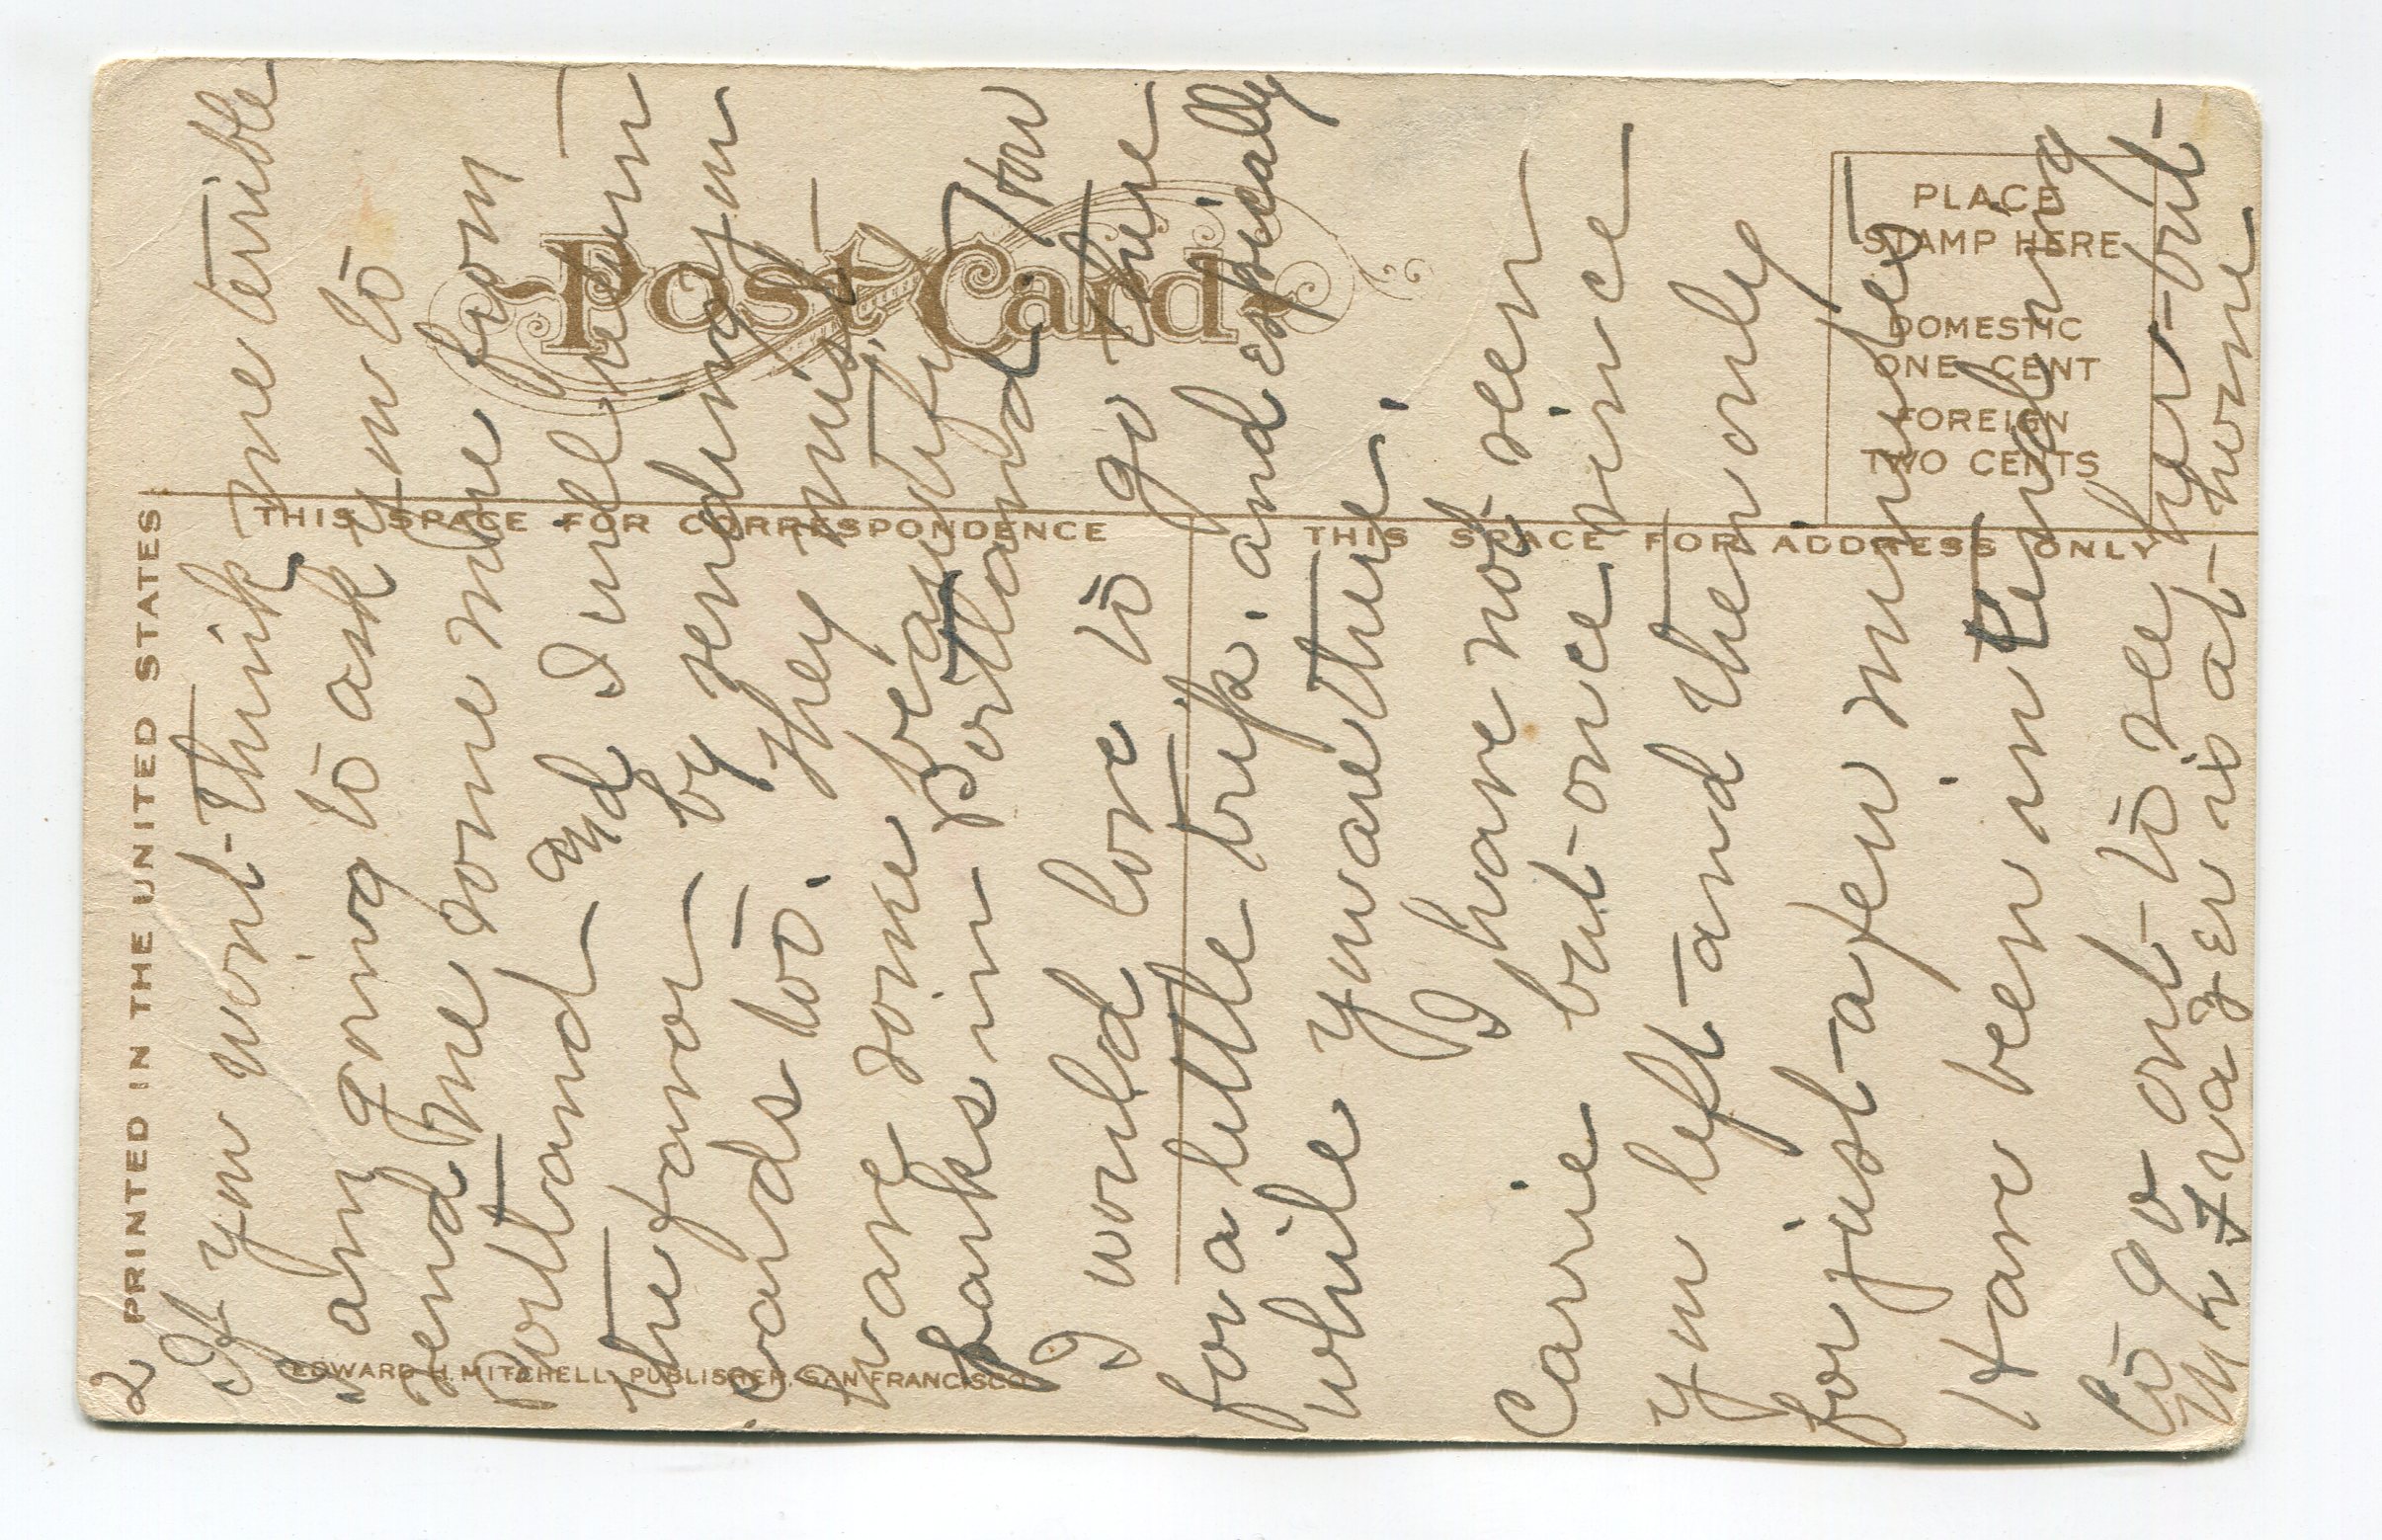 2
If you wont think me terrible
I am going to ask you to
send me some more from
Portland and I will return
the favor by sending you
cards too. They must
have some beautiful
parks in Portland. How
I would love to go there
for a little trip. and espically
while you are there.
I have not seen
Carrie but once since
you left and then only
for just a few minutes
Have been intending
to go out to see her - but
Mr Frazer is at home
PRINTED IN THE UNITED STATES
Post Card
PLACE
STAMP HERE
DOMESTIC
ONE CENT
FOREIGN
TWO CENTS
THIS SPACE FOR CORRESPONDENCE
THIS SPACE FOR ADDRESS ONLY
EDWARD H. MITCHELL, PUBLISHER, SAN FRANCISCO